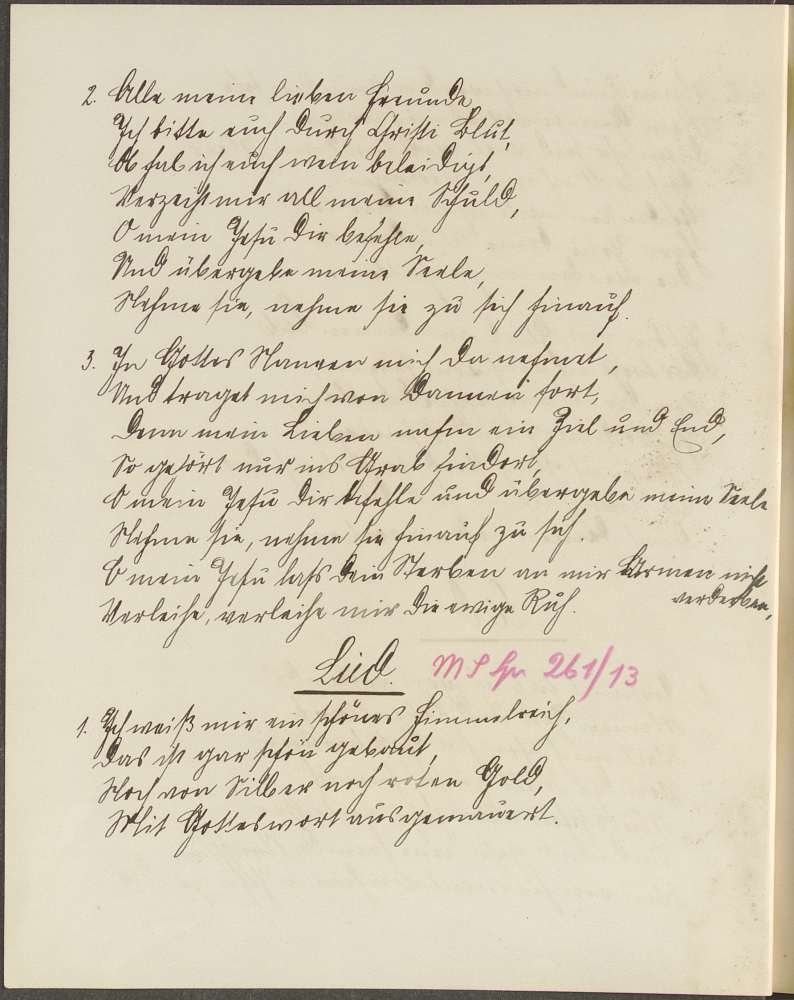 2. Alle meine lieben Freunde,
Ich bitte euch durch Christi Blut,
Ob hab ich euch wem beleidigt,
Verzeiht mir all meine Schuld,
O mein Jesu dir befehle,
Und übergebe meine Seele,
Nehme sie, nehme sie zu sich hinauf.
3. In Gottes Namen mich da nehmet,
Und traget mich von dannen fort,
Denn mein Lieben nahm ein Ziel und End,
So gehört nur ins Grab hindort,
O mein Jesu dir befehle und übergebe meine Seele
Nehme sie, nehme sie hinauf zu sich.
O mein Jesu lass dein Sterben an mir Armen nicht
verderben,
Verleihe, verleihe mir die ewige Ruh.
Lied.
261/13
1. Ich weiß mir ein schönes Himmelreich,
Das ist gar schön gebaut,
Noch von Silber noch roten Gold,
Mit Gotteswort ausgemauert.